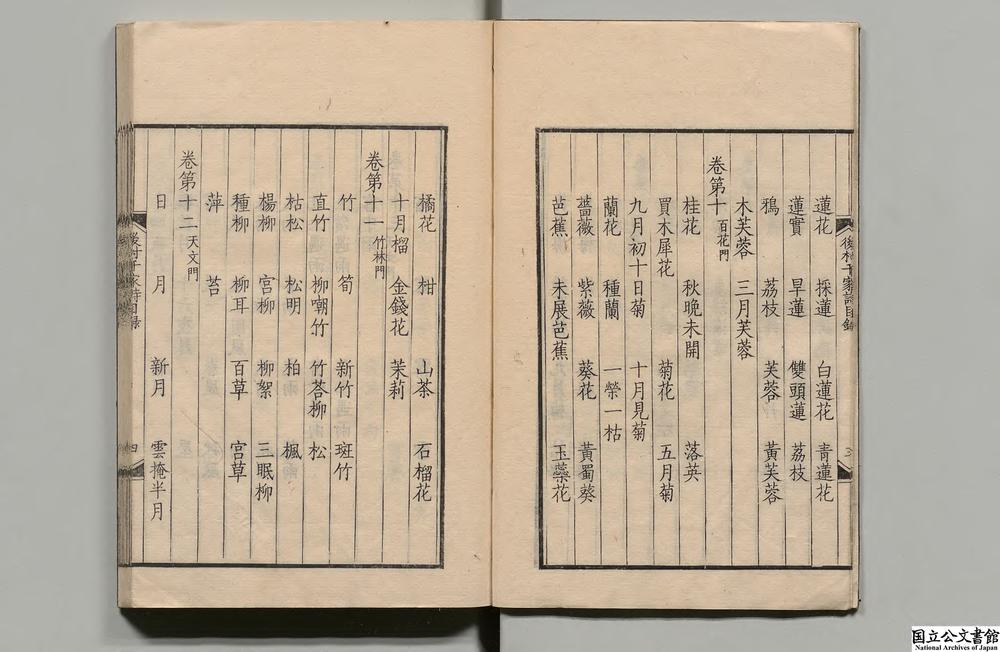 後村千家詩目錄
蓮花 採蓮 白蓮花 青蓮花
蓮實 早蓮 雙頭蓮 荔枝
鴉 荔枝 芙蓉 黃芙蓉
木芙蓉 三月芙蓉
卷第十 百花門
桂花 秋晚未開 落英
買木犀花 菊花 五月菊
九月初十日菊 十月見菊
蘭花 種蘭 一榮一枯
薔薇 紫薇 葵花 黃蜀葵
芭蕉 未展芭蕉 玉蘂花
橘花 柑 山茶 石榴花
十月榴 金錢花 茉莉
卷第十一 竹林門
竹 筍 新竹 斑竹
直竹 柳嘲竹 竹答柳 松
枯松 松明 柏 楓
楊柳 宮柳 柳絮 三眠柳
種柳 柳耳 百草 宮草
萍 苔
卷第十二 天文門
日 月 新月 雲掩半月
後村千家詩目錄 四
国立公文書館
National Archives of Japan